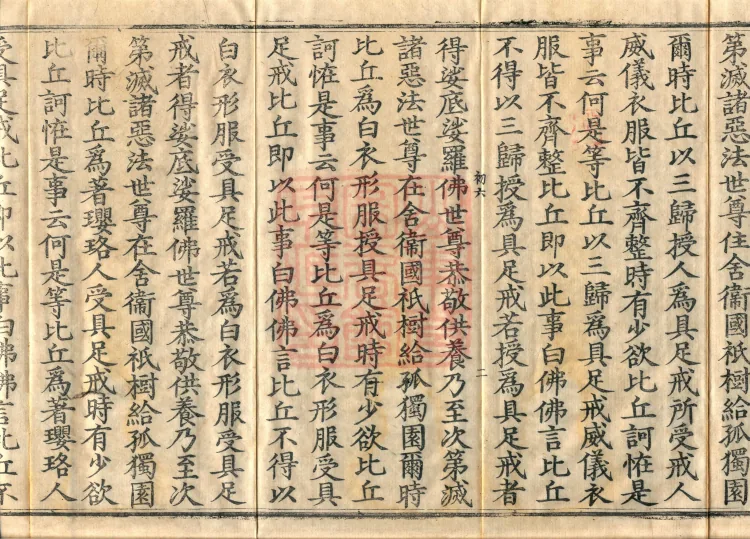 第滅諸惡法世尊住舍衞國祇樹給孤獨園
爾時比丘以三歸授人爲具足戒所受戒人
威儀衣服皆不齊整時有少欲比丘訶恠是
事云何是等比丘以三歸爲具足戒威儀衣
服皆不齊整比丘即以此事白佛佛言比丘
不得以三歸授爲具足戒若授爲具足戒者
初六 二
得娑底娑羅佛世尊恭敬供養乃至次第滅
諸惡法世尊在舍衞國祇樹給孤獨園爾時
比丘爲白衣形服授具足戒時有少欲比丘
訶恠是事云何是等比丘爲白衣形服受具
足戒比丘即以此事白佛佛言比丘不得以
白衣形服受具足戒若爲白衣形服受具足
戒者得娑底娑羅佛世尊恭敬供養乃至次
第滅諸惡法世尊在舍衞國祇樹給孤獨園
爾時比丘爲著瓔珞人受具足戒時有少欲
比丘訶恠是事云何是等比丘爲著瓔珞人
受具足戒比丘即以此事白佛佛言比丘不